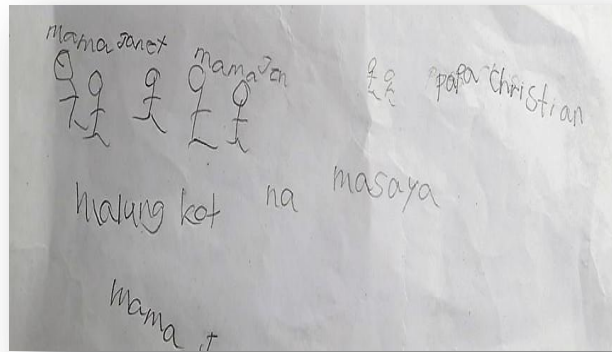 mama Janet
mama Jen
papa Christian
malung kot na masaya
mama